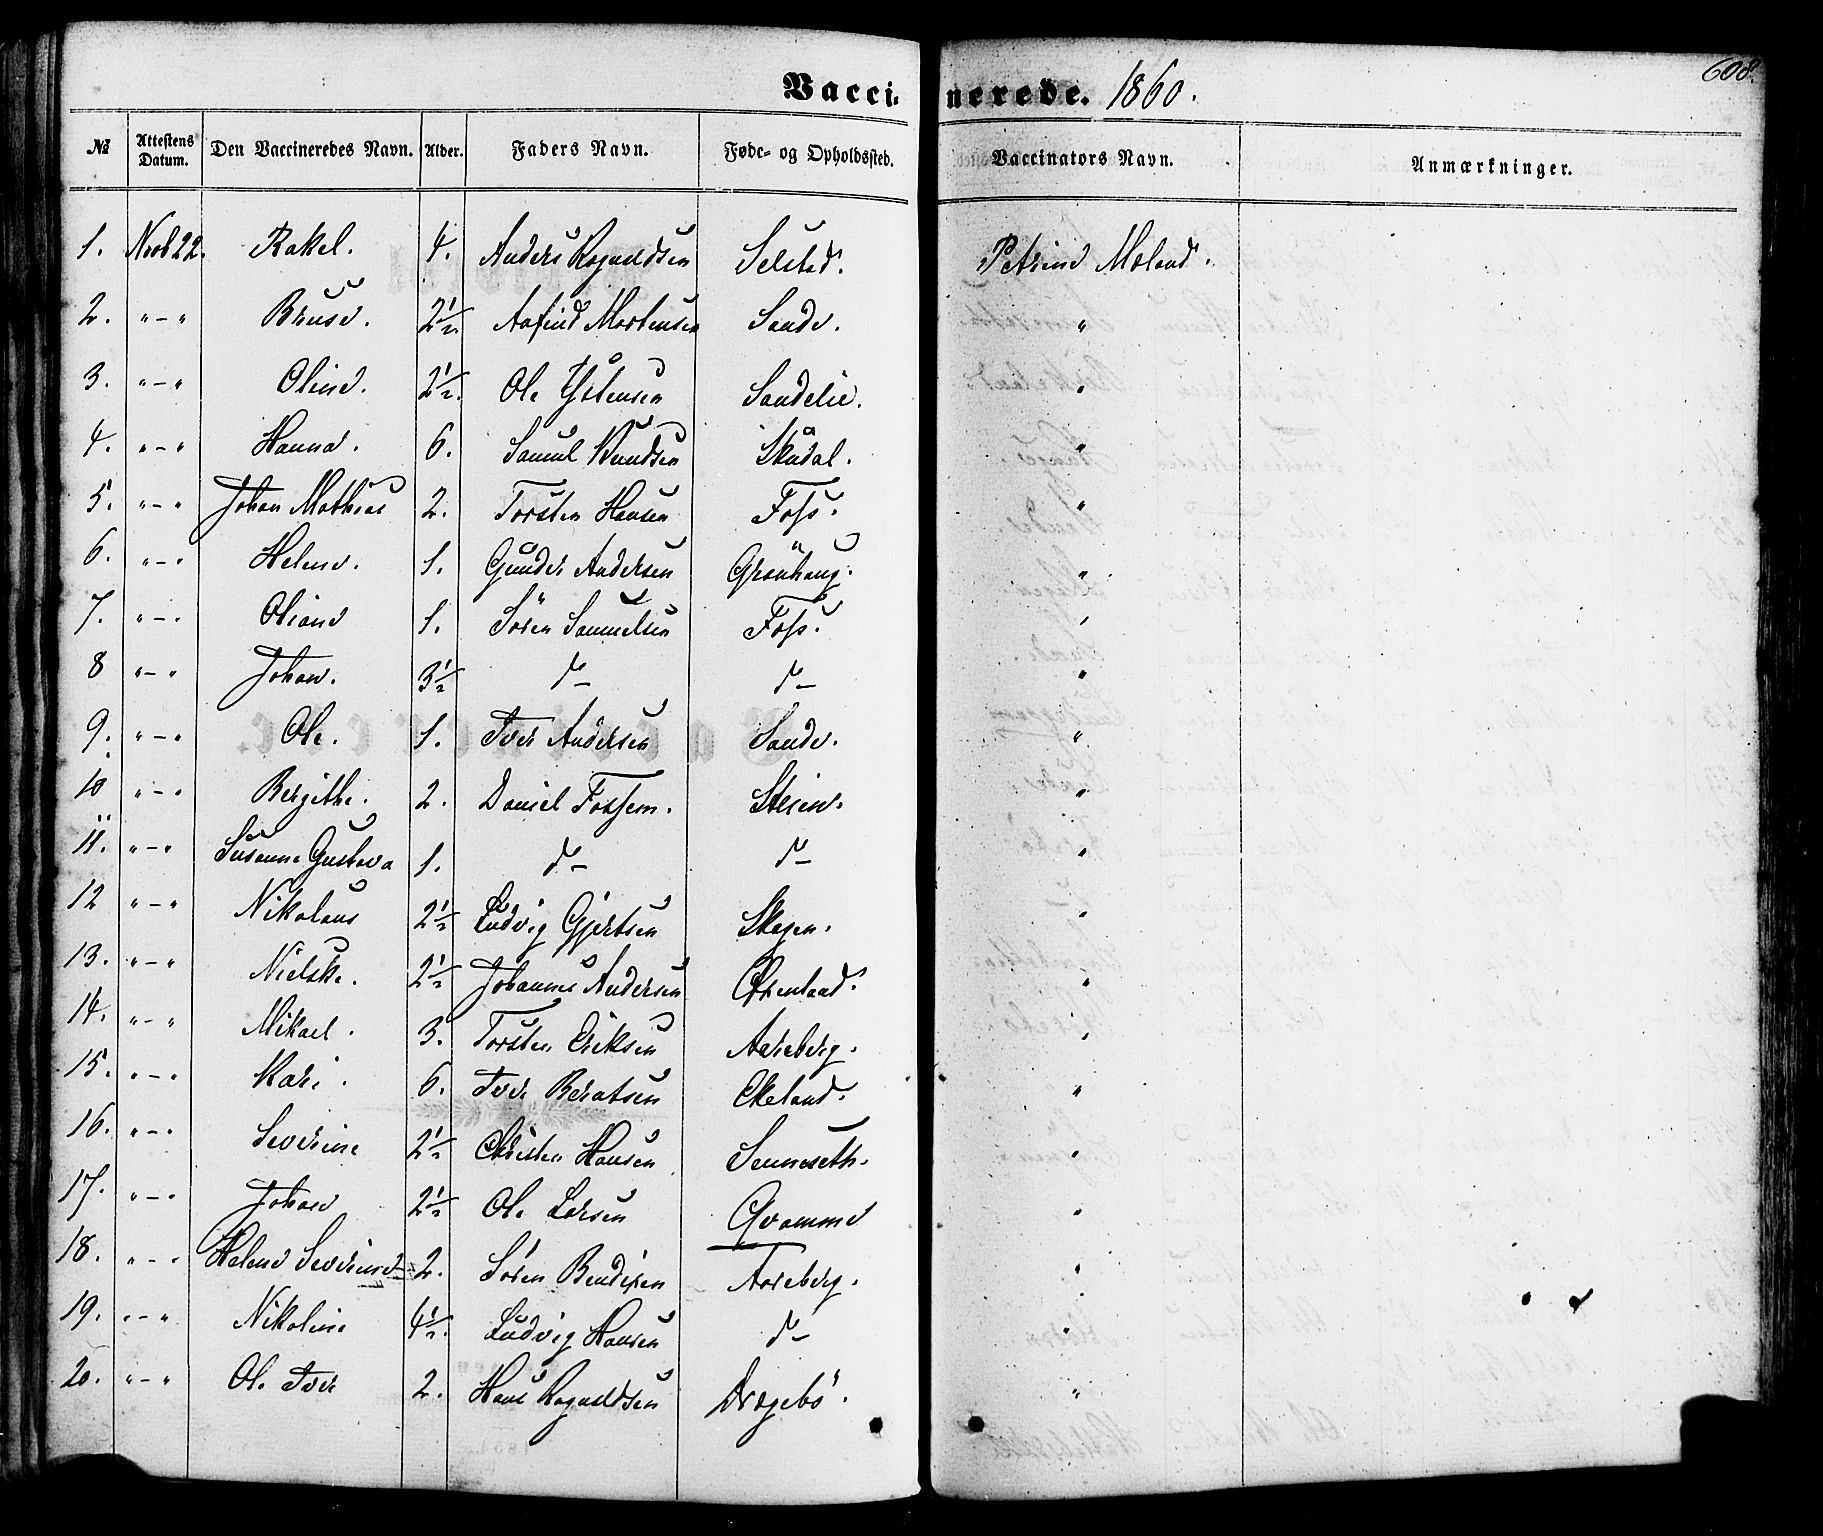 Vaccinerede. 1860.
608.
№ Attestens Datum. Den Vaccineredes Navn. Alder. Faders Navn. Føde- og Opholdssted. Vaccinators Navn. Anmærkninger.
1. Novb 22. Rakel. 4. Anders Rognaldsen Selstad. Petrine Moland.
2. " – " 2½ Mortensen Sande. "
3. " – " Oline. 2½. Ole Ystensen Sandelie. "
4. " – " Hanna. 6. Samul Knudsen Skådal. "
5. " – " Johan Mathias 2. Torsten Hansen Foss. "
6. " – " Helene. 1. Gunder Andersen Grönhaug. "
7. " – " Oliane 1. Sören Samuelsen Foss. "
8 " – " Johan. 3½ d– d– "
9. " – " Ole. 1. Iver Andersen Sande. "
10 " – " Bergithe. 2. Daniel Fossem. "
11. " – " Susanne Gustava 1. d– d– "
12 " – " Nikolaus 2½ Ludvig Gjertsen Skegen. "
13. " – " Nielske. 2½ Johannes Andersen "
14. " – " Mikael. 3. Torsten Eriksen Aareberg. "
15. " – " Kari. 6. Iver Berntsen Ekeland. "
16. " – " Severine 2½ Christen Hansen Senneseth. "
17. " – " Johan 2½ Ole Larsen Qvamme "
18. " – " Helene Severine 2. Sören Bendixen Aareberg. "
19. " – " Nikoline 4½. Ludvig Hansen d– "
20. " – " Ole Iver 2. Hans Rognaldsen Dragebö. "